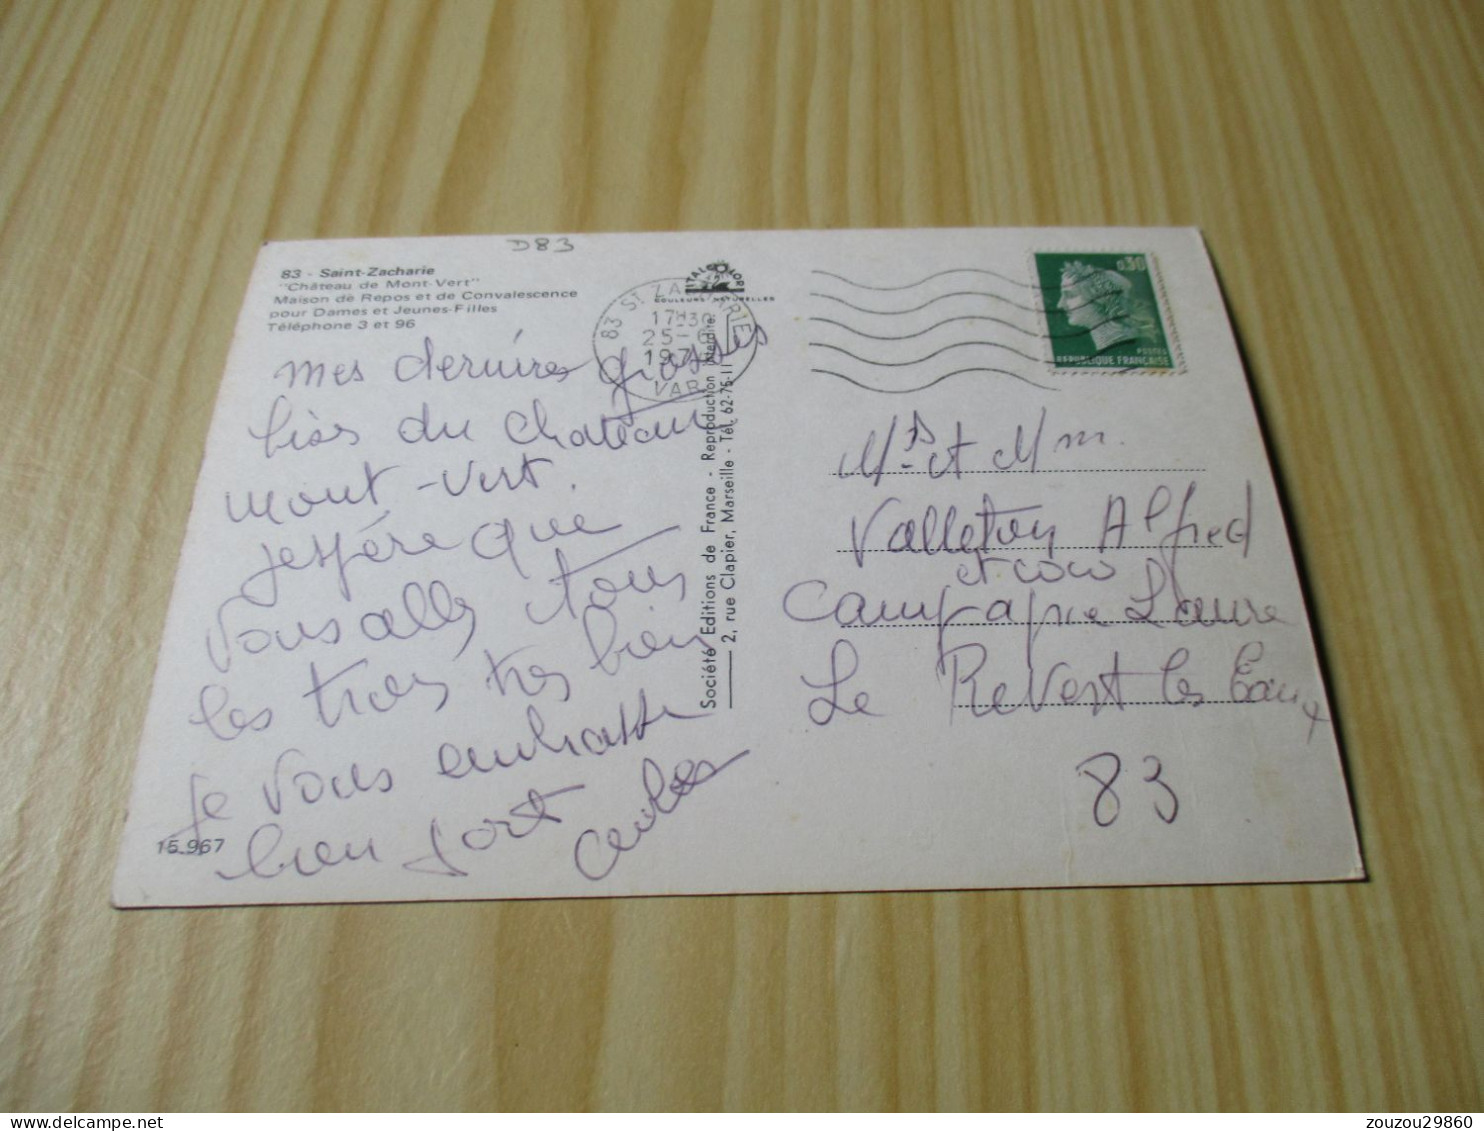 D83
83 - Saint-Zacharie
"Château de Mont-Vert"
Maison de Repos et de Convalescence
pour Dames et Jeunes-Filles
Téléphone 3 et 96
mes dernières grosses
bises du chateau
mont-vert.
jespère que
vous allez tous
les trois très bien
je vous embrasse
bien fort
15.967
ITALCOLOR
COULEURS NATURELLES
83 ST ZACHARIE
17H30
25-
197
VAR
Société Editions de France - Reproduction interdite.
2, rue Clapier, Marseille - Tél. 62-76-11
0,30
POSTES
REPUBLIQUE FRANÇAISE
Mr et Mm.
Valleton Alfred
et coco
Campagne Laure
Le Revest les Eaux
83
zouzou29860